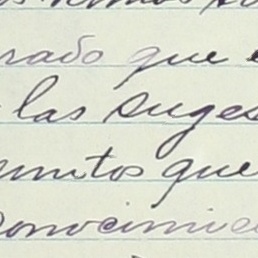 rado que e
las suges
untos que
conocimie